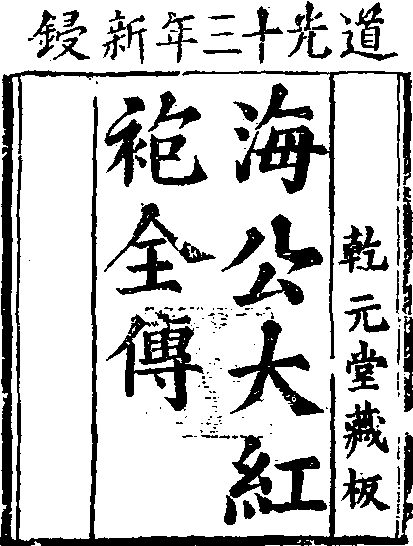 道光十三年新鋟
乾元堂藏板
海公大紅
袍全傳